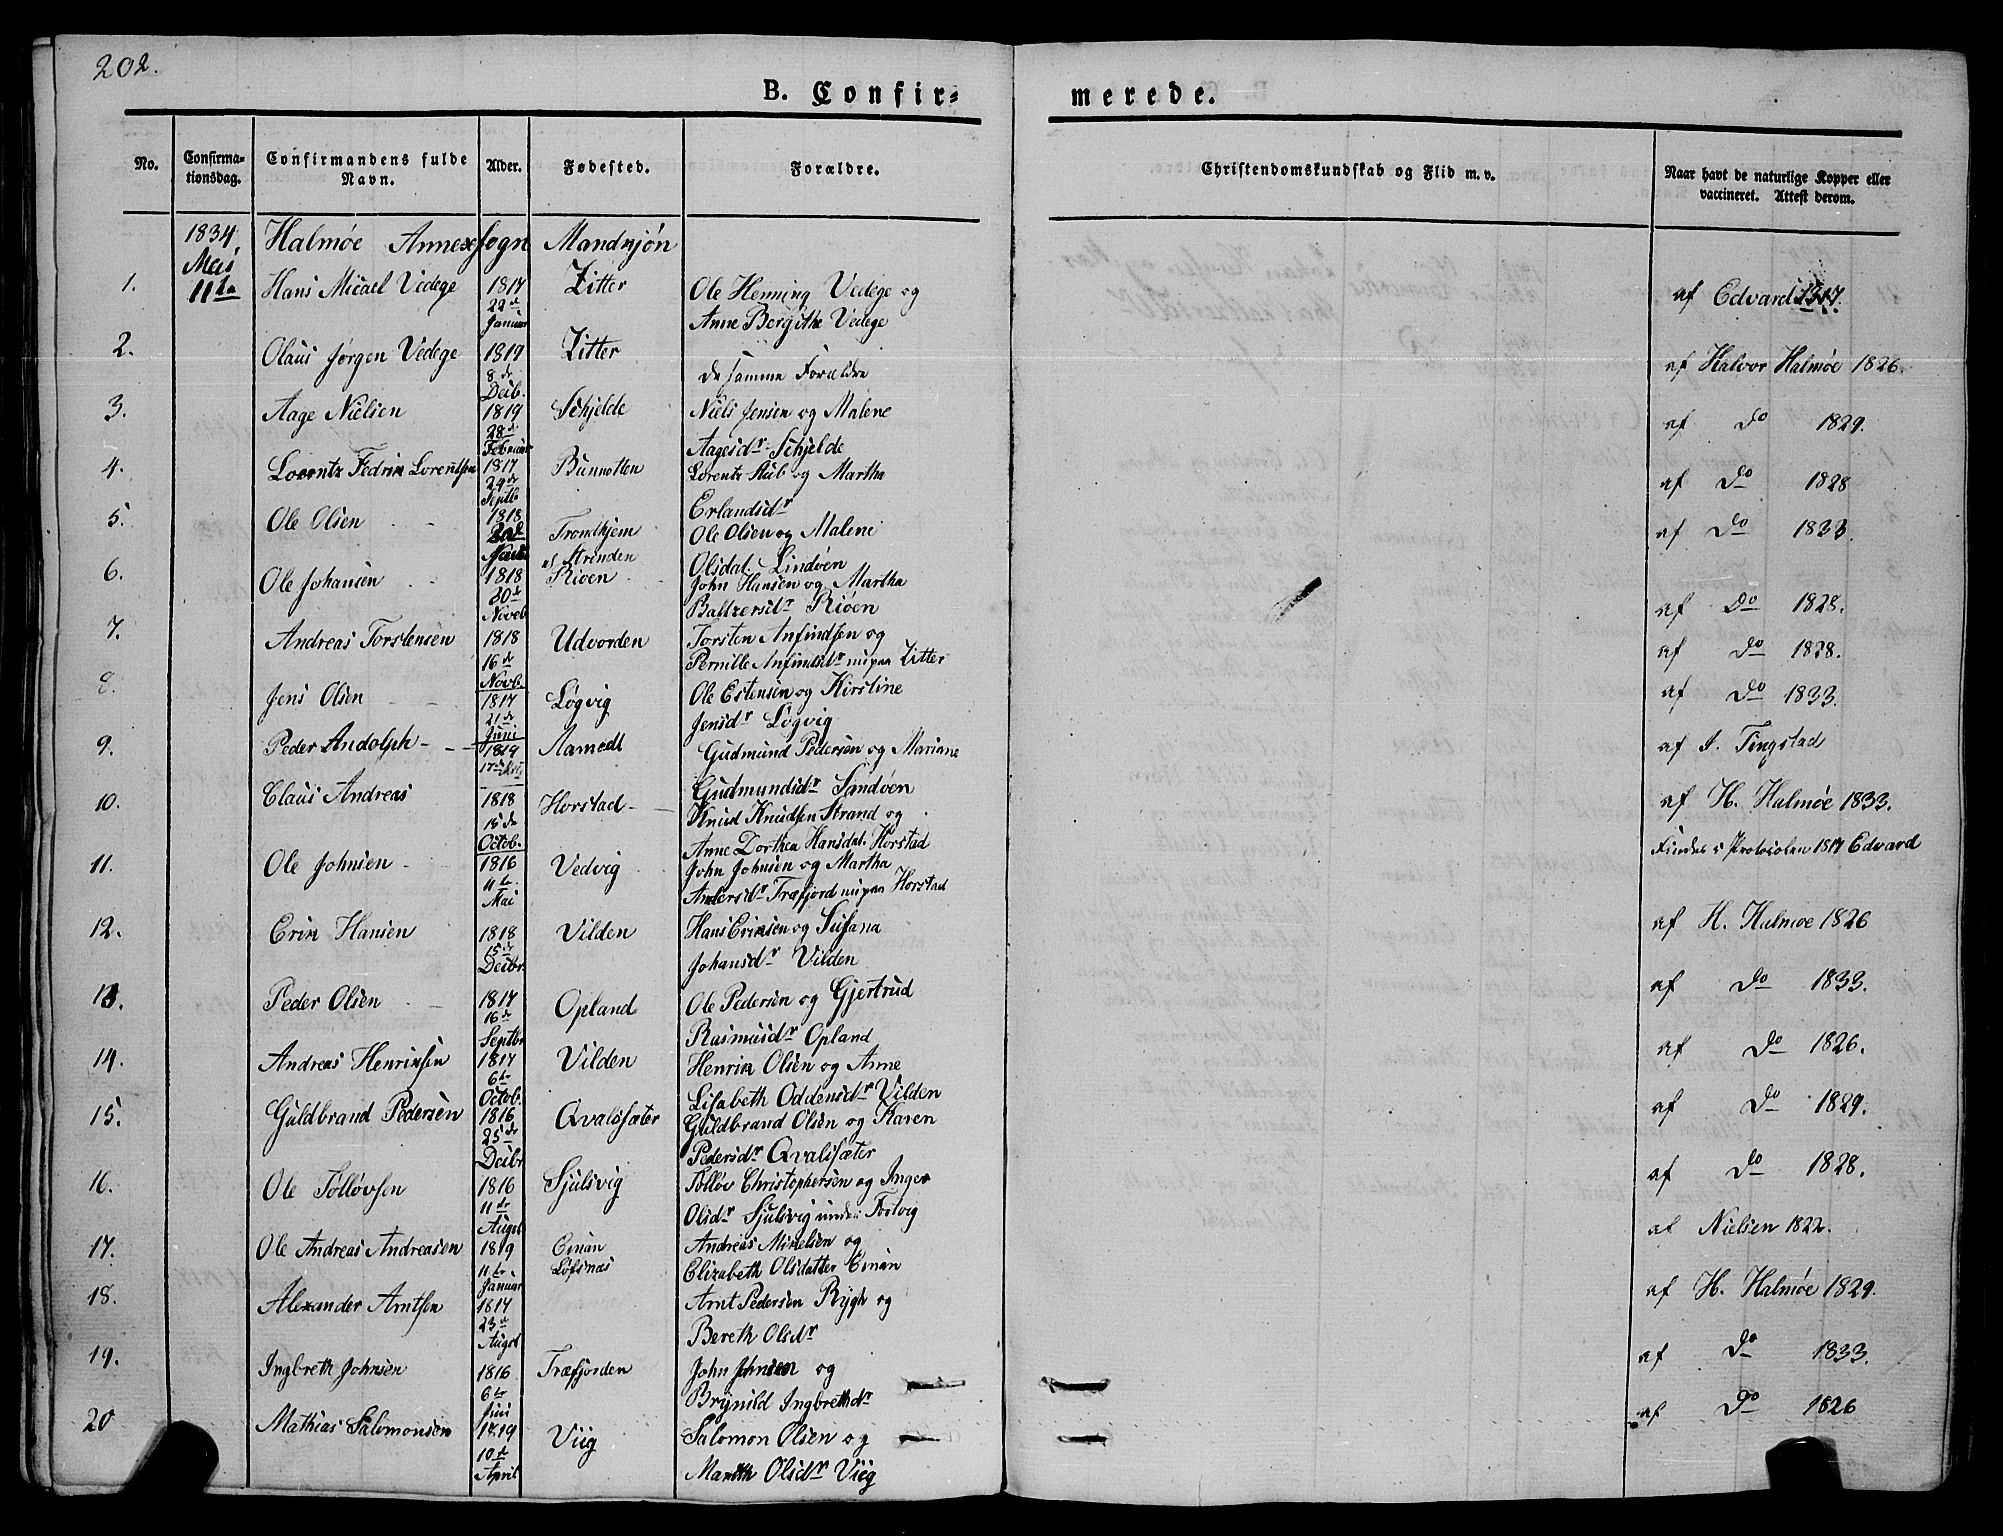 202.
B. Confir-
merede.
No.
Confirma-
tionsdag.
Confirmandens fulde
Navn.
Alder.
Fødested.
Forældre.
Christendomskundskab og Flid m. v.
Naar havt de naturlige Kopper eller
vaccineret. Attest derom.
1834 Halmøe Annexsogn Mandkjøn
Mai
1. 11te Hans Micael Vedege 1817 Zitter Ole Henning Vedege og af Edvard 1817.
22de
Januar Anne Bergithe Vedege
2. Olaus Jørgen Vedege 1819 Zitter de samme Forældre af Halvor Halmøe 1826.
8de
Decb.
3. Aage Nielsen 1819 Schjelde Niels Jensen og Malene af Do 1829.
28de
Februar Aagesdr Schjelde
4. Lorentz Fedrik Lorentsen 1817 Lorentz Stub og Martha af Do 1828
29de
Septb Erlandsdr
5. Ole Olsen 1818 Trondhjem Ole Olsen og Malene af Do 1833.
Strinden Olsdat. Lindøen
6. Ole Johansen 1818 Riøen John Hansen og Martha
30te
Novb. Baltzersdr Riøen af Do 1828.
7. Andreas Torstensen 1818 Udvorden Torsten Anfindsen og af Do 1828.
16de
Novb. Pernille Anfindsdr nu paa Zitter
8. Jens Olsen 1817 Løgvig Ole Estensen og Kirstine af Do 1833.
21de
Juni Jensdr Løgvig
9. Peder Andolph 1819 Gudmund Pedersen og Mariane af J. Tingstad
17de
Gudmundsdr Sandøen
10. Claus Andreas 1818 Horstad Knud Knudsen Strand og af H. Halmøe 1833.
15de
Octob. Anne Dorthea Hansdat. Horstad
11. Ole Johnsen 1816 Vedvig John Johnsen og Martha Findes i Protocolen 1817 Edvard
11te
Mai Andersdr Træfjord nu paa Horstad
12. Erik Hansen 1818 Vilden Hans Eriksen og Susana af H. Halmoe 1826
15de
Decbr. Johansdr Vilden
13. Peder Olsen 1817 Opland Ole Pedersen og Gjertrud af Do 1833.
16de
Septbr Rasmusdr Opland
14. Andreas Henriksen 1817 Vilden Henrik Olsen og Anne af Do 1826.
6te
Octob. Lisabeth Oddensdr Vilden
15. Guldbrand Pedersen 1816 Qvalsæter Guldbrand Olsen og Karen af Do 1829.
25de
Decbr Pedersdr Qvalsæter
16. Ole Tølløvsen 1816 Sjulsvig Tølløv Christophersen og Inger af Do 1828.
11te
Augst Olsdr Sjulsvig
17. Ole Andreas Andreasen 1819 Andreas Mikelsen og af Nielsen 1822.
11te
Januar Elizabeth Olsdatter
18. Alexander Arntsen 1817 Arnt Pedersen Rygh og af H. Halmøe 1829.
23de
Augst Bereth Olsdr
19. Ingbreth Johnsen 1816 Træfjorden John Johnsen og af Do 1833.
6te
Juni Brynild Ingbrethdr
20 Mathias Salomonsen 1819 Viig Salomon Olsen og af Do 1826
10de
April Olsdr Viig